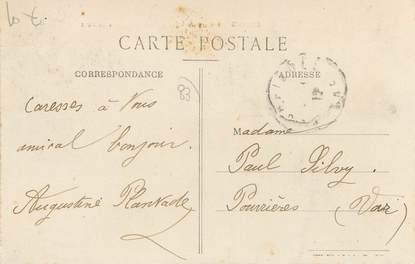 CARTE POSTALE
CORRESPONDANCE
83
Caresses à Vous
amical bonjour.
Augustine Plantade
ADRESSE
Madame
Paul Silvy.
Pourrières (Var)